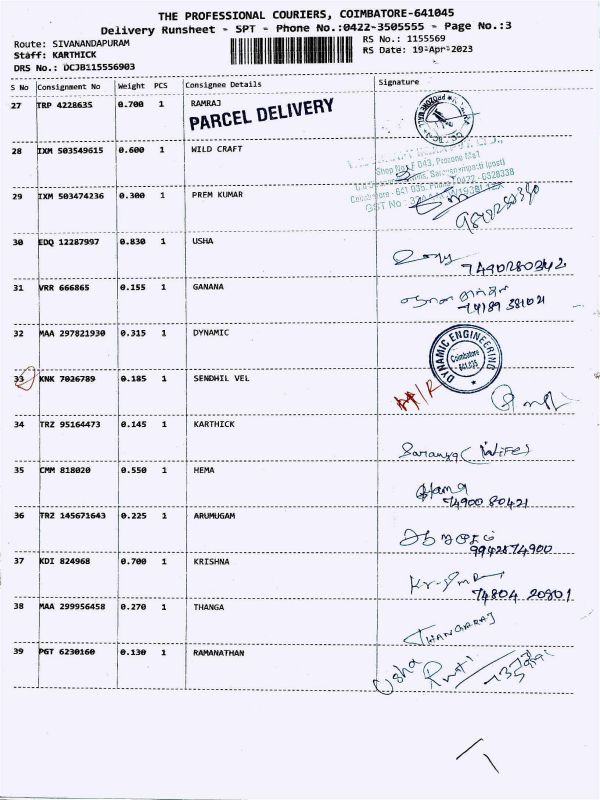 THE PROFESSIONAL COURIERS, COIMBATORE-641045
Delivery Runsheet - SPT - Phone No.:0422-3505555 - Page No.:3
Route: SIVANANDAPURAM RS No.: 1155569
Staff: KARTHICK RS Date: 19-Apr-2023
DRS No.: DCJB115556903
S No Consignment No Weight PCS Consignee Details Signature
27 TRP 4228635 0.700 1 RAMRAJ
PARCEL DELIVERY
28 IXM 503549615 0.600 1 WILD CRAFT
29 IXM 503474236 0.300 1 PREM KUMAR
30 EDQ 12287997 0.830 1 USHA
31 VRR 666865 0.155 1 GANANA
32 MAA 297821930 0.315 1 DYNAMIC
DYNAMIC ENGINEERING
Coimbatore
33 KNK 7026789 0.185 1 SENDHIL VEL
34 TRZ 95164473 0.145 1 KARTHICK
Saranya (Wife)
35 CMM 818020 0.550 1 HEMA
74900 80421
36 TRZ 145671643 0.225 1 ARUMUGAM
ஆறுமுகம்
9942874900
37 KDI 824968 0.700 1 KRISHNA
74804 20801
38 MAA 299956458 0.270 1 THANGA
THANGARAJ
39 PGT 6230160 0.130 1 RAMANATHAN
Usha